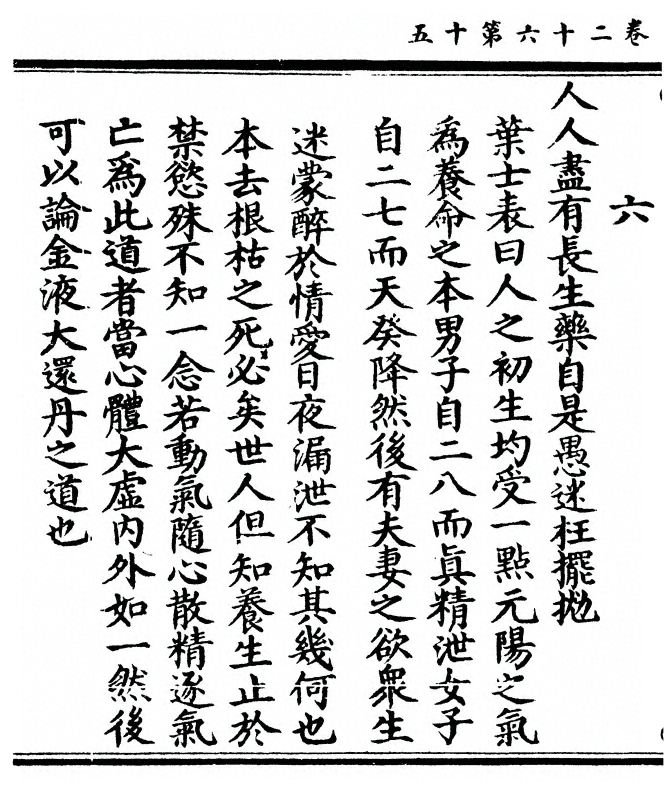 卷二十六第十五
六
人人盡有長生藥自是愚迷枉擺拋
葉士表曰人之初生均受一點元陽之氣
爲養命之本男子自二八而眞精泄女子
自二七而天癸降然後有夫妻之欲衆生
迷蒙醉於情愛日夜漏泄不知其幾何也
本去根枯之死必矣世人但知養生止於
禁慾殊不知一念若動氣隨心散精逐氣
亡爲此道者當心體大虛內外如一然後
可以論金液大還丹之道也